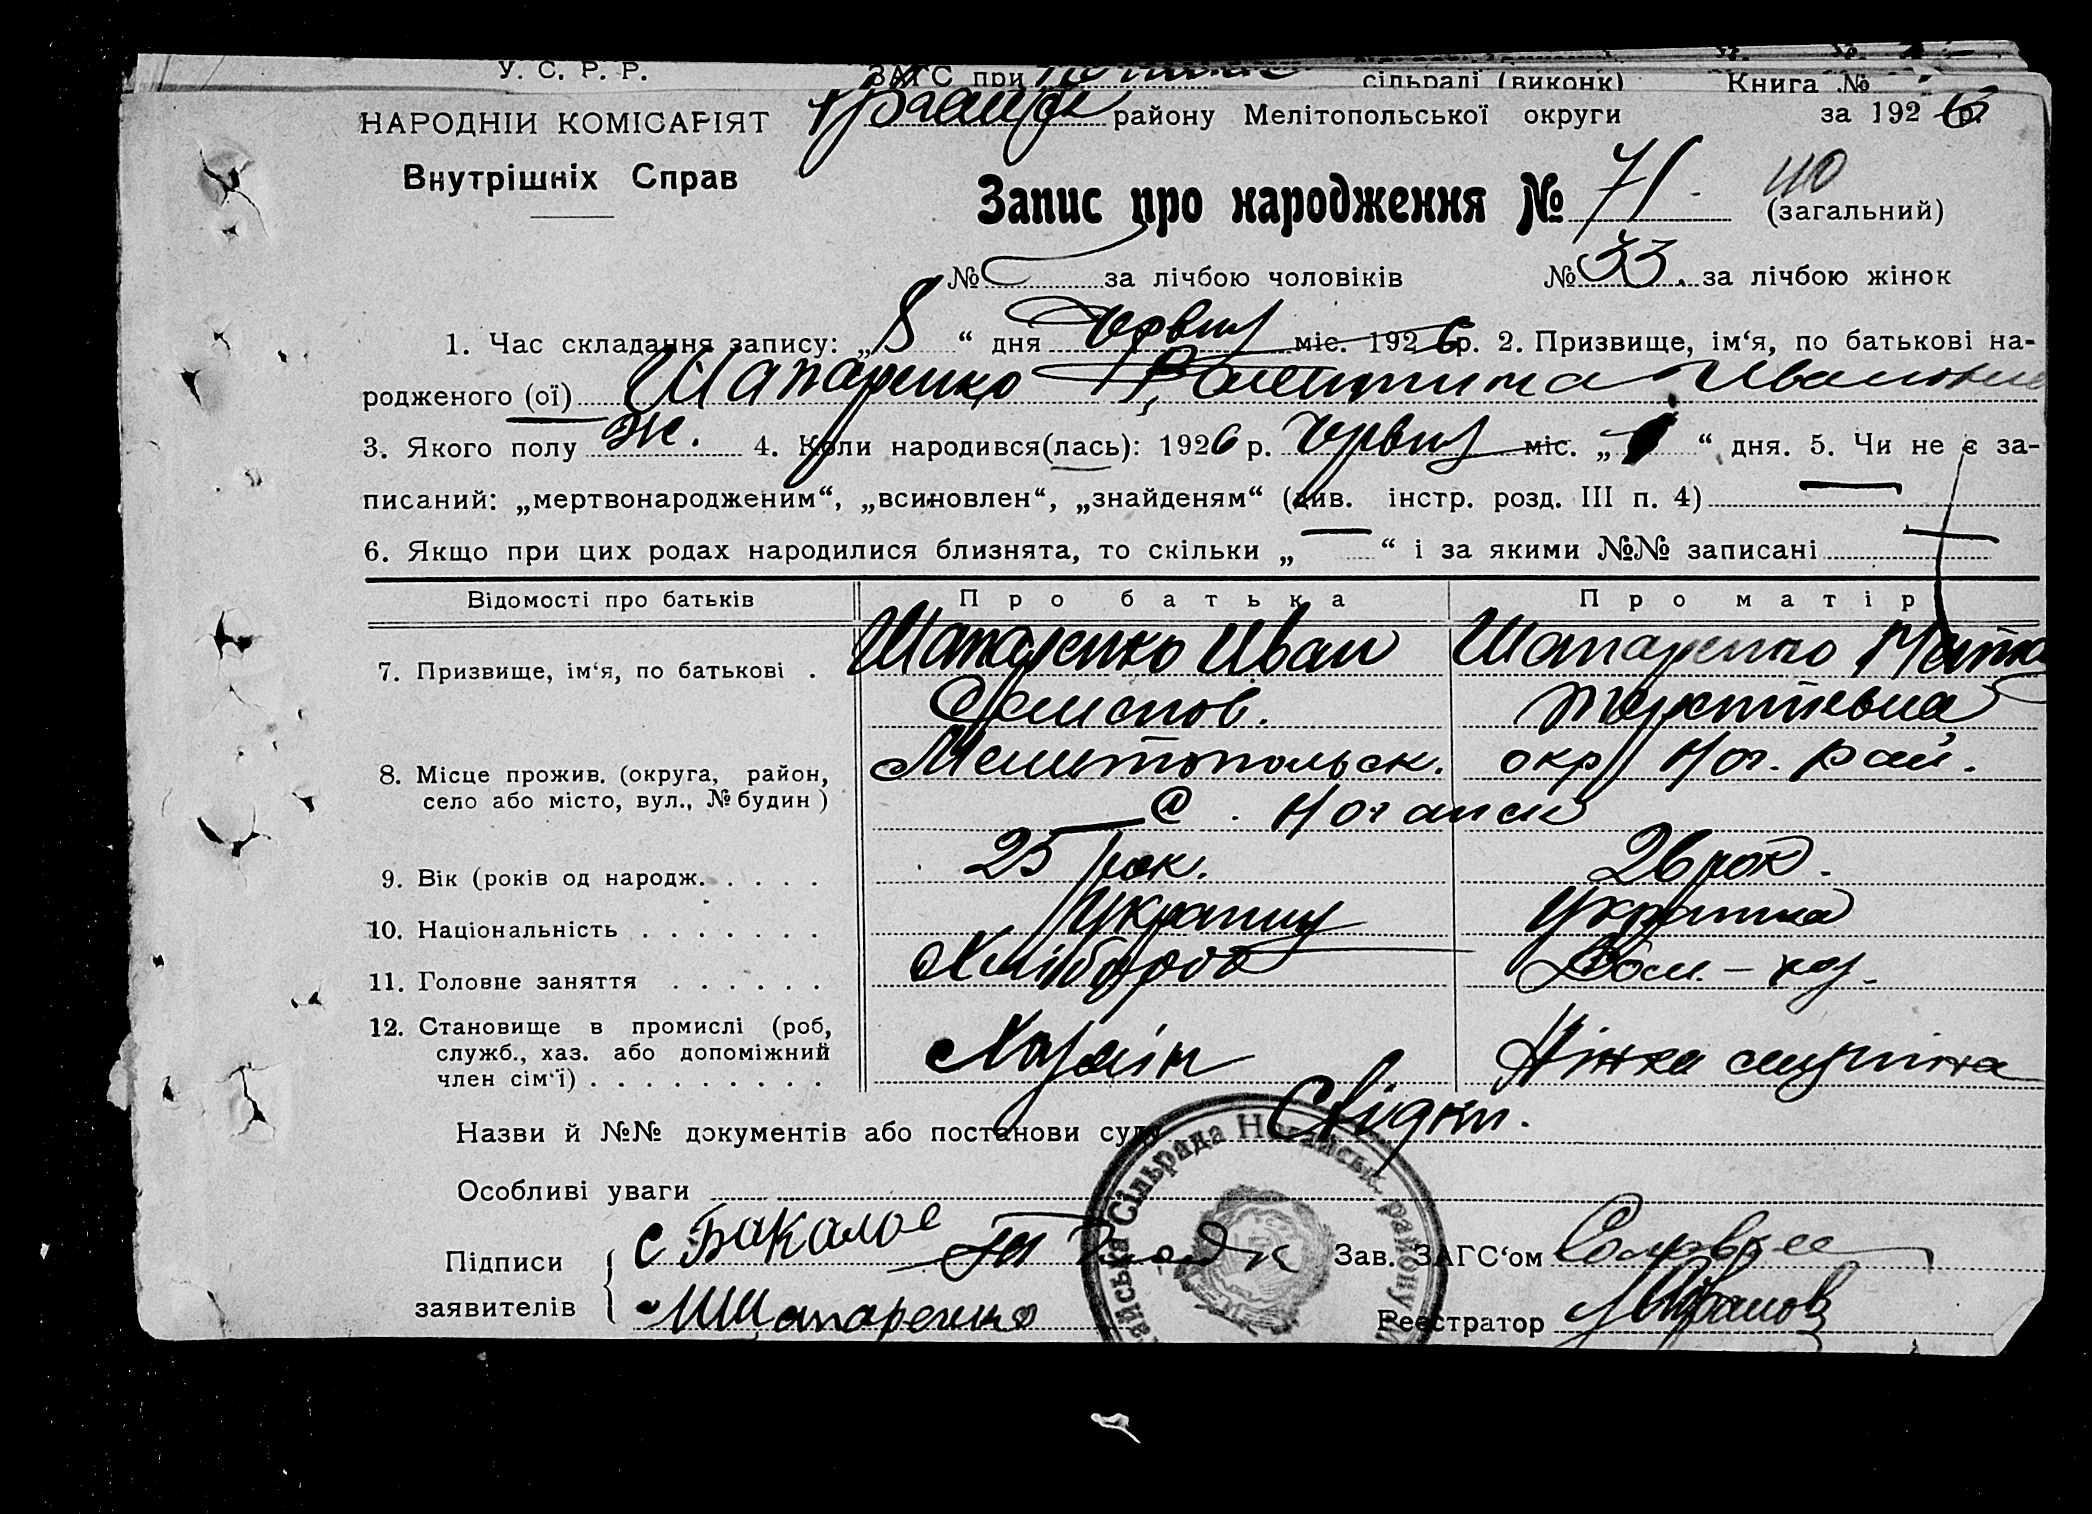 У. С. Р. Р. ЗАГС при сільраді (виконк) Книга №
НАРОДНІЙ КОМІСАРІЯТ району Мелітопольської округи за 1926 р.
Внутрішніх Справ
Запис про народження № 71. 40 (загальний)
№ за лічбою чоловіків № 33. за лічбою жінок
1. Час складання запису: „8“ дня Червня міс. 1926 р. 2. Призвище, ім‘я, по батькові на-
родженого (ої) Шапаренко Валентина Ивановна
3. Якого полу Ж. 4. Коли народився(лась): 1926 р. Червня міс. „ “ дня. 5. Чи не є за-
писаний: „мертвонародженим“, „всиновлен“, „знайденям“ (див. інстр. розд. III п. 4)
6. Якщо при цих родах народилися близнята, то скільки „ — “ і за якими №№ записані —
Відомості про батьків Про батька Про матір
7. Призвище, ім‘я, по батькові . Шапаренко Иван Шапаренко
8. Місце прожив. (округа, район, Мелитопольск. окр Ног. рай.
село або місто, вул., № будин) с. Ногайск
9. Вік (років од народж. . . . . 25 рок. 26 рок.
10. Національність . . . . . . . Украинц Украинка
11. Головне заняття . . . . . . Хлібороб Дом.-хоз.
12. Становище в промислі (роб,
служб., хаз. або допоміжний Хазяін Жінка
член сім‘ї) . . . . . . . . .
Назви й №№ документів або постанови суду Свідки.
Особливі уваги
Підписи Зав. ЗАГС‘ом
заявителів Шапаренко Реєстратор
Сільрада Ногайськ. району